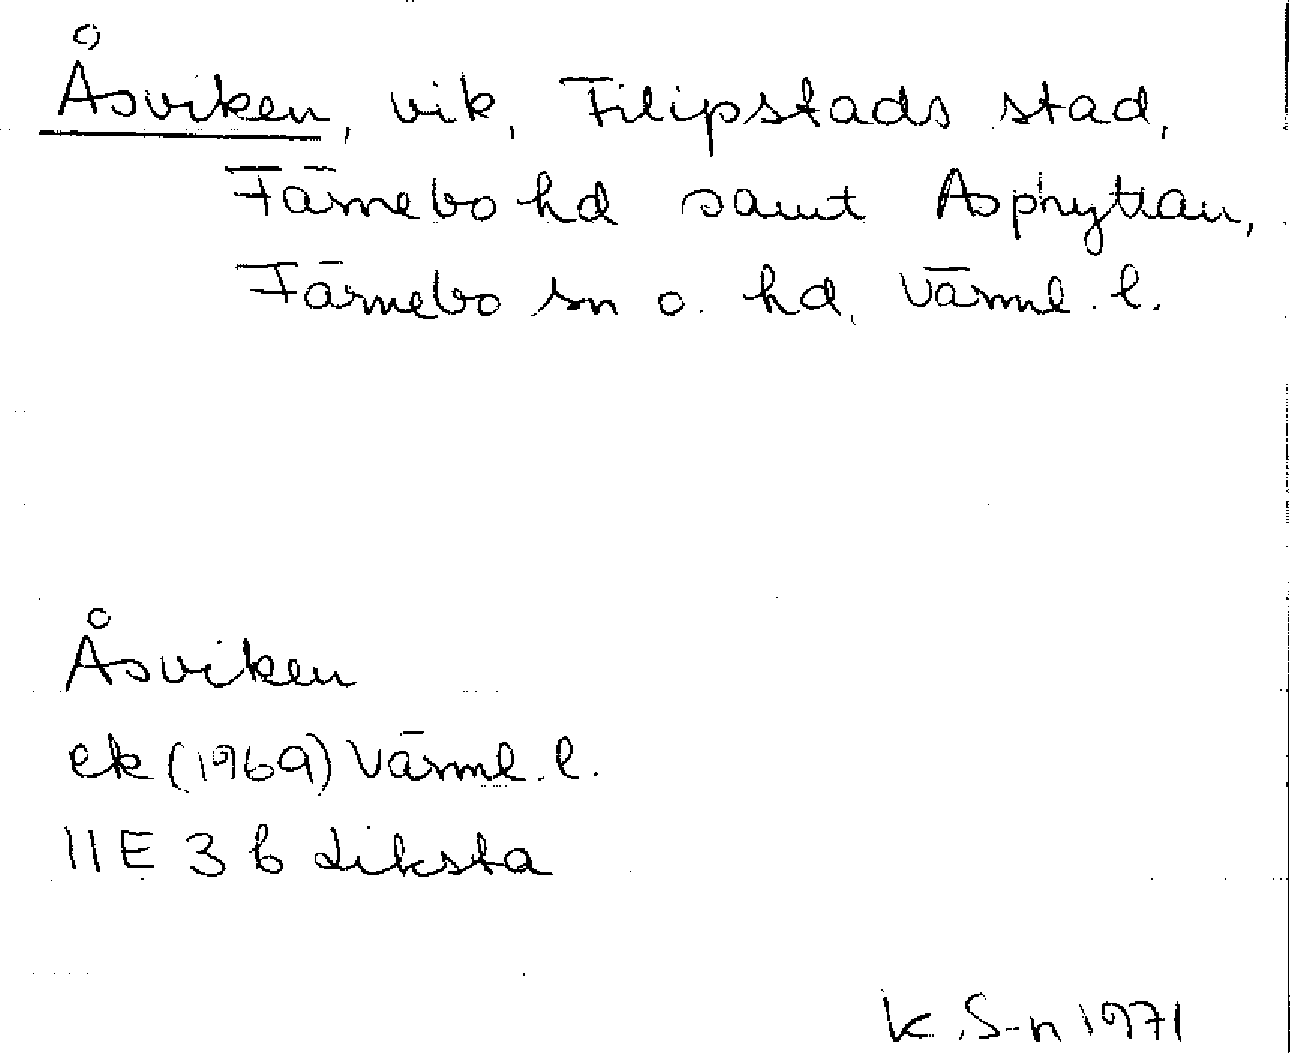 Åsviken, vik, Filipstads stad,
Färnebo hd samt Asphyttan,
Färnebo sn o. hd, Värml. l.
Åsviken
ek (1969) Värml. l.
11E 3 b Liksta
K. S-n 1971